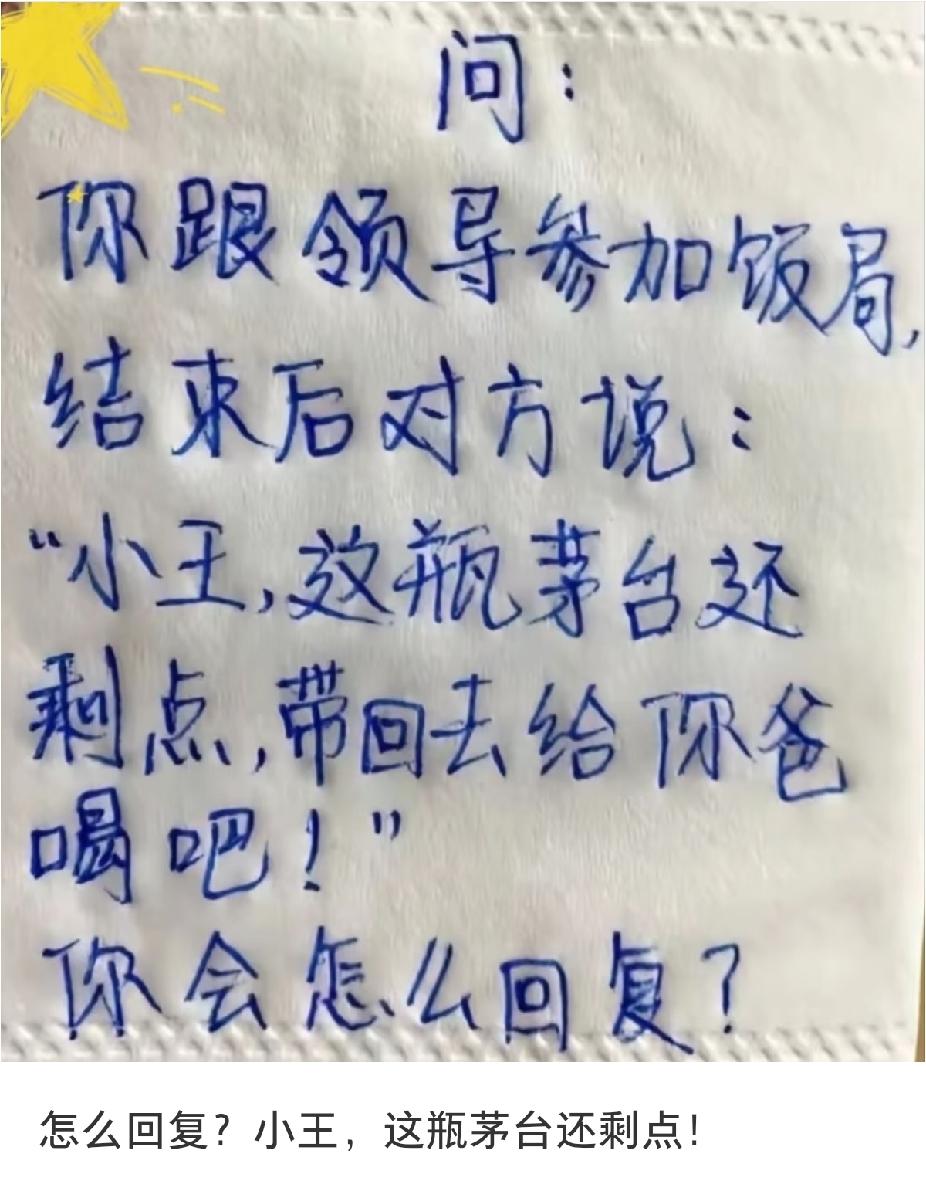 问：
你跟领导参加饭局，
结束后对方说：
“小王，这瓶茅台还
剩点，带回去给你爸
喝吧！”
你会怎么回复？
怎么回复？小王，这瓶茅台还剩点！